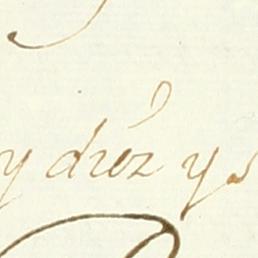 y diez y s